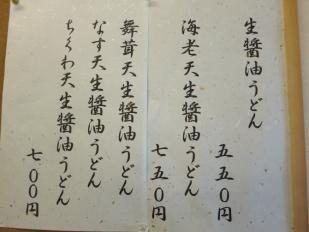 生醬油うどん
五五〇円
海老天生醬油うどん
七五〇円
舞茸天生醬油うどん
なす天生醬油うどん
ちくわ天生醬油うどん
七〇〇円